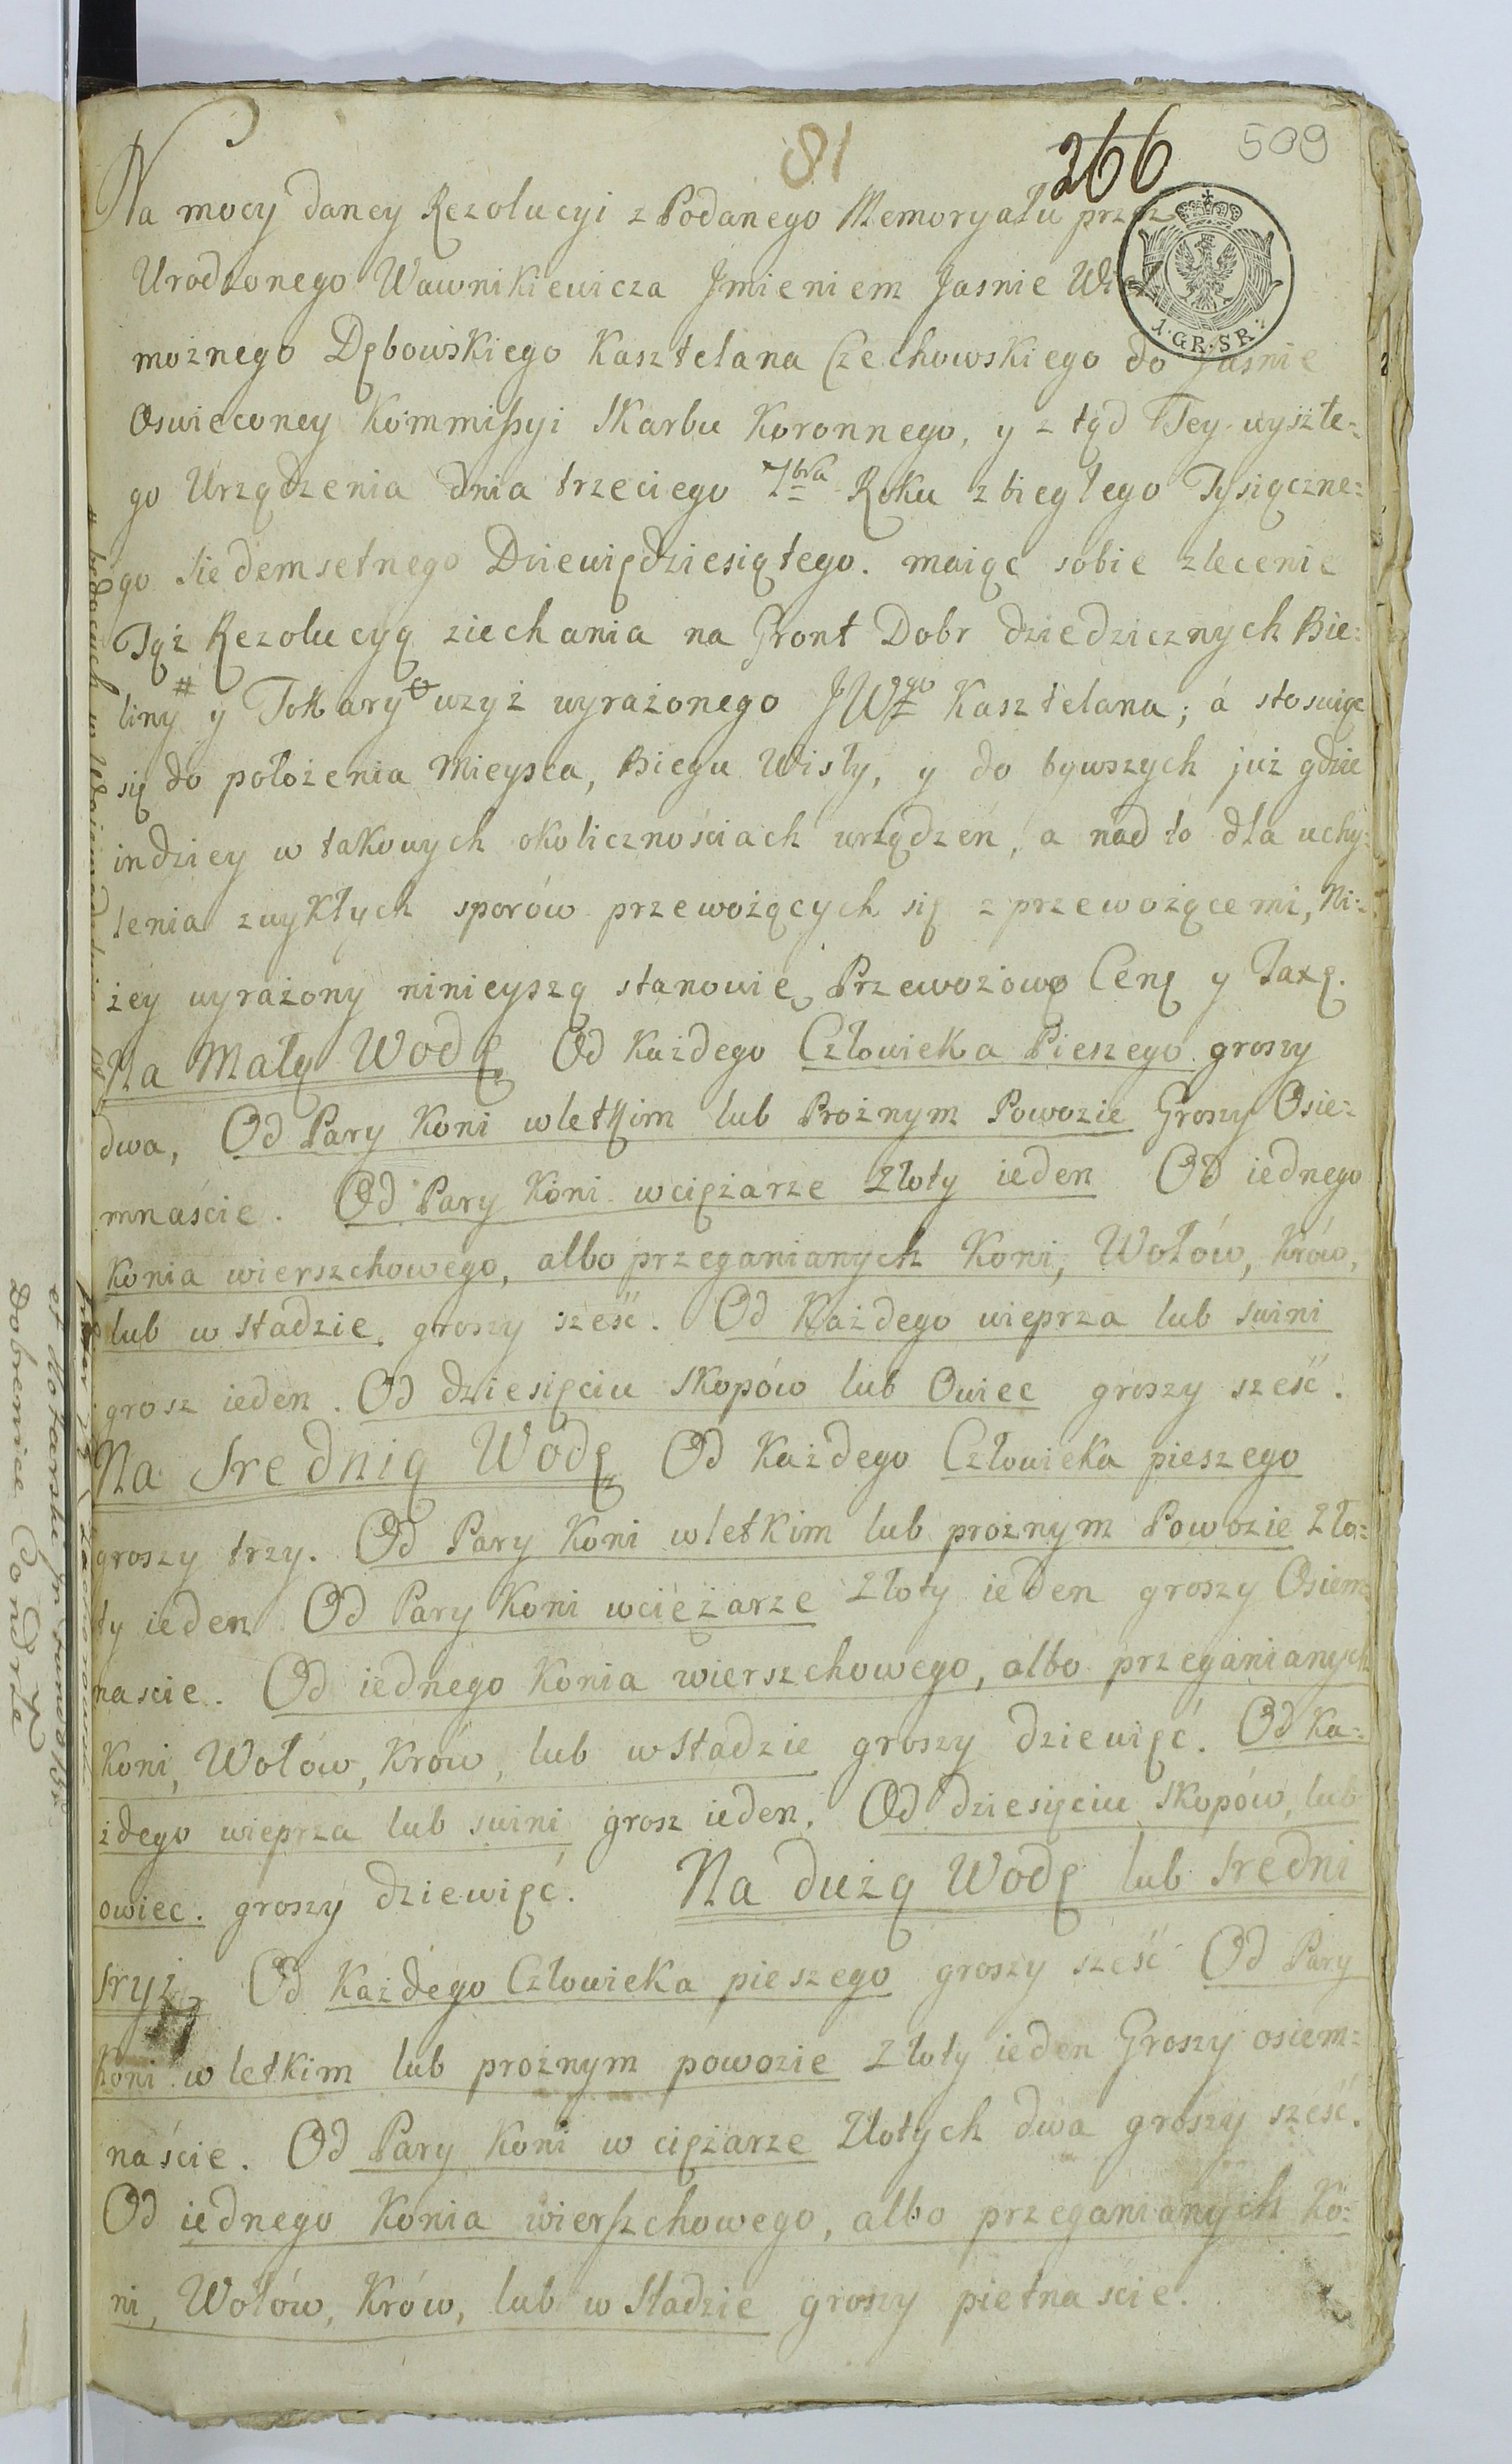 81
266
509
Na mocy daney Rezolucyi z Podanego Memoryału przez
Urodzonego Wawnikiewicza Jmieniem Jasnie Wiel
1. GR. SR.
możnego Dębowskiego Kasztelana Czechowskiego do Jasnie
Oswieconey Kommissyi Skarbu Koronnego, y z tąd Tey wyszłe=
go Urządzenia dnia trzeciego 7bra Roku zbiegłego Tysiączne=
go siedemsetnego Dziewiędziesiątego. maiąc sobie zlecenie
Tąż Rezolucyą ziechania na Gront Dobr dziedzicznych Bie=
liny # y Tokary wzyż wyrażonego JWgo Kasztelana; á stosuiąc
się do położenia Mieysca, Biegu Wisły, y do bywszych już gdzie
indziey w takowych okolicznościach urządzeń, a nad to dla uchy=
lenia zwykłych sporów przewożących się z przewożącemi, Ni=
żey wyrażony ninieyszą stanowię Przewozową Cenę y Taxę.
Na Małą Wodę Od Każdego Człowieka Pieszego groszy
dwa, Od Pary Koni w letkim lub Prożnym Powozie Groszy Osie=
mnaście. Od Pary Koni w ciężarze Złoty ieden Od iednego
Konia wierszchowego, albo przeganianych Koni, Wołów, Krów,
lub w stadzie groszy sześć. Od Każdego wieprza lub swini
grosz ieden. Od dziesięciu Skopów lub Owiec groszy sześć.
Na Srednią Wodę Od Każdego Człowieka pieszego
groszy trzy. Od Pary Koni w letkim lub prożnym Powozie Zło=
ty ieden Od Pary Koni w ciężarze Złoty ieden groszy Osiem
nascie. Od iednego Konia wierszchowego, albo przeganianych
Koni, Wołów, Krów, lub w Stadzie groszy dziewięć. Od Ka=
żdego wieprza lub swini grosz ieden. Od dziesięciu Skopów, lub
owiec. groszy dziewięć. Na dużą Wodę lub Sredni
Sryż Od Każdego Człowieka pieszego groszy sześć Od Pary
Koni w letkim lub prożnym powozie Złoty ieden Groszy osiem=
naście. Od Pary Koni w ciężarze Złotych dwa groszy sześć.
Od iednego Konia wierszchowego, albo przeganianych Ko=
ni, Wołów, Krów, lub w Stadzie groszy pietnascie.
# będących w
Dobrenice Condrze